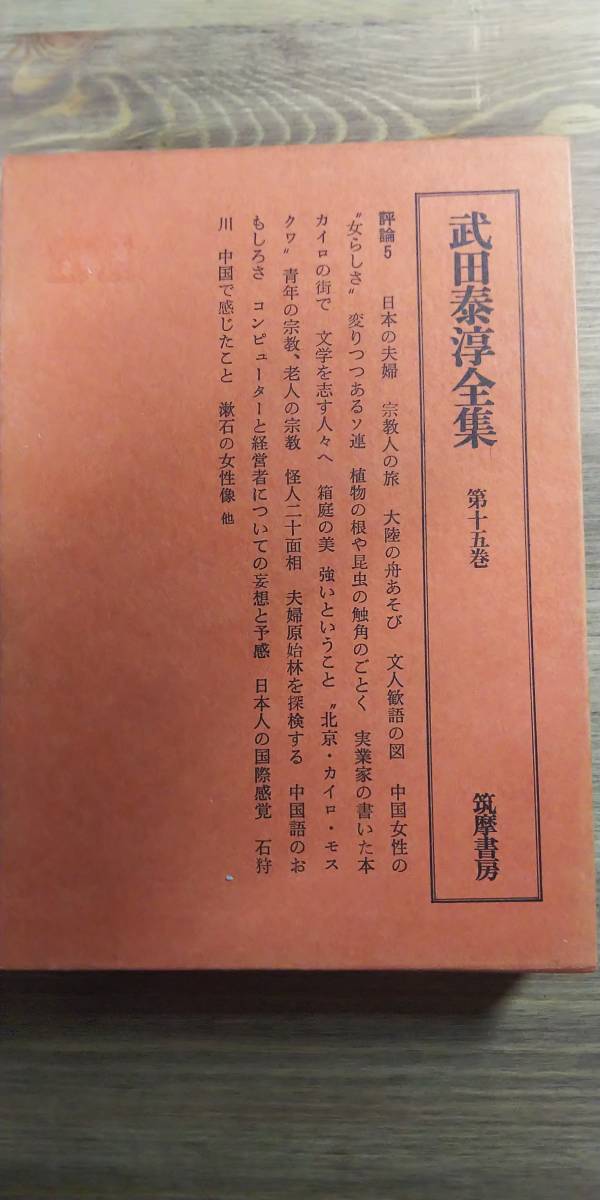 武田泰淳全集 第十五巻 筑摩書房
評論5 日本の夫婦 宗教人の旅 大陸の舟あそび 文人歓語の図 中国女性の
〝女らしさ〟 変りつつあるソ連 植物の根や昆虫の触角のごとく 実業家の書いた本
カイロの街で 文学を志す人々へ 箱庭の美 強いということ 〝北京・カイロ・モス
クワ〟 青年の宗教、老人の宗教 怪人二十面相 夫婦原始林を探検する 中国語のお
もしろさ コンピューターと経営者についての妄想と予感 日本人の国際感覚 石狩
川 中国で感じたこと 漱石の女性像 他